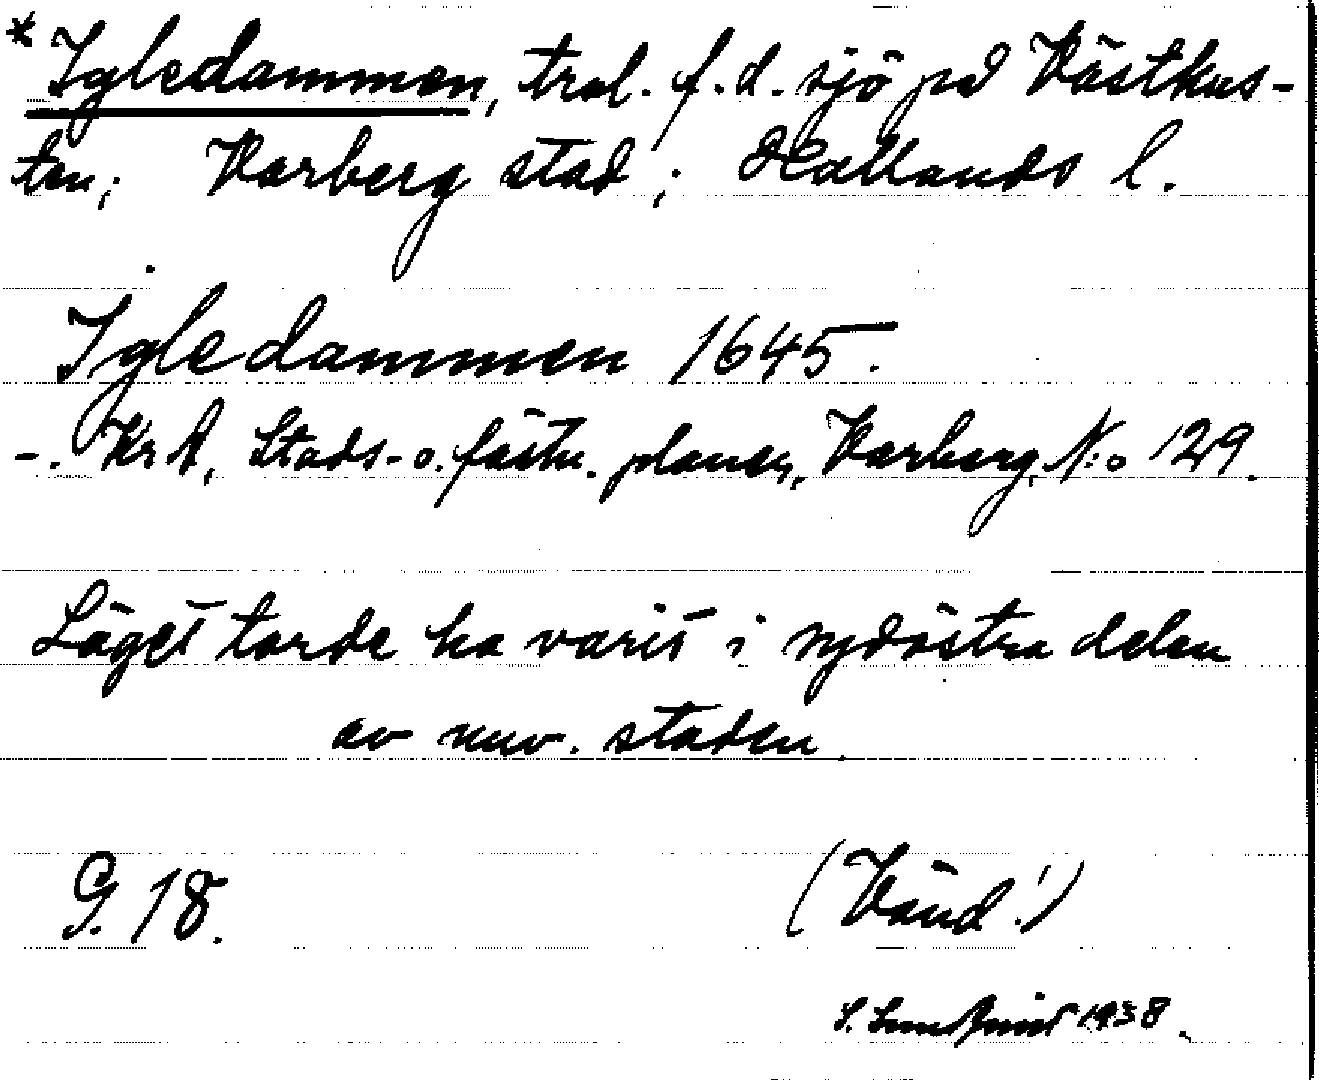 * Igledammen, trol. f.d. sjö på Västkus-
ten; Varberg stad; Hallands l.
Igledammen 1645.
-. KrA, Stads- o. fästn. planer, Varberg, N:o 129.
Läget torde ha varit i sydöstra delen
av nuv. staden.
G. 18.
(Vänd!)
S. Lundquist 1938.